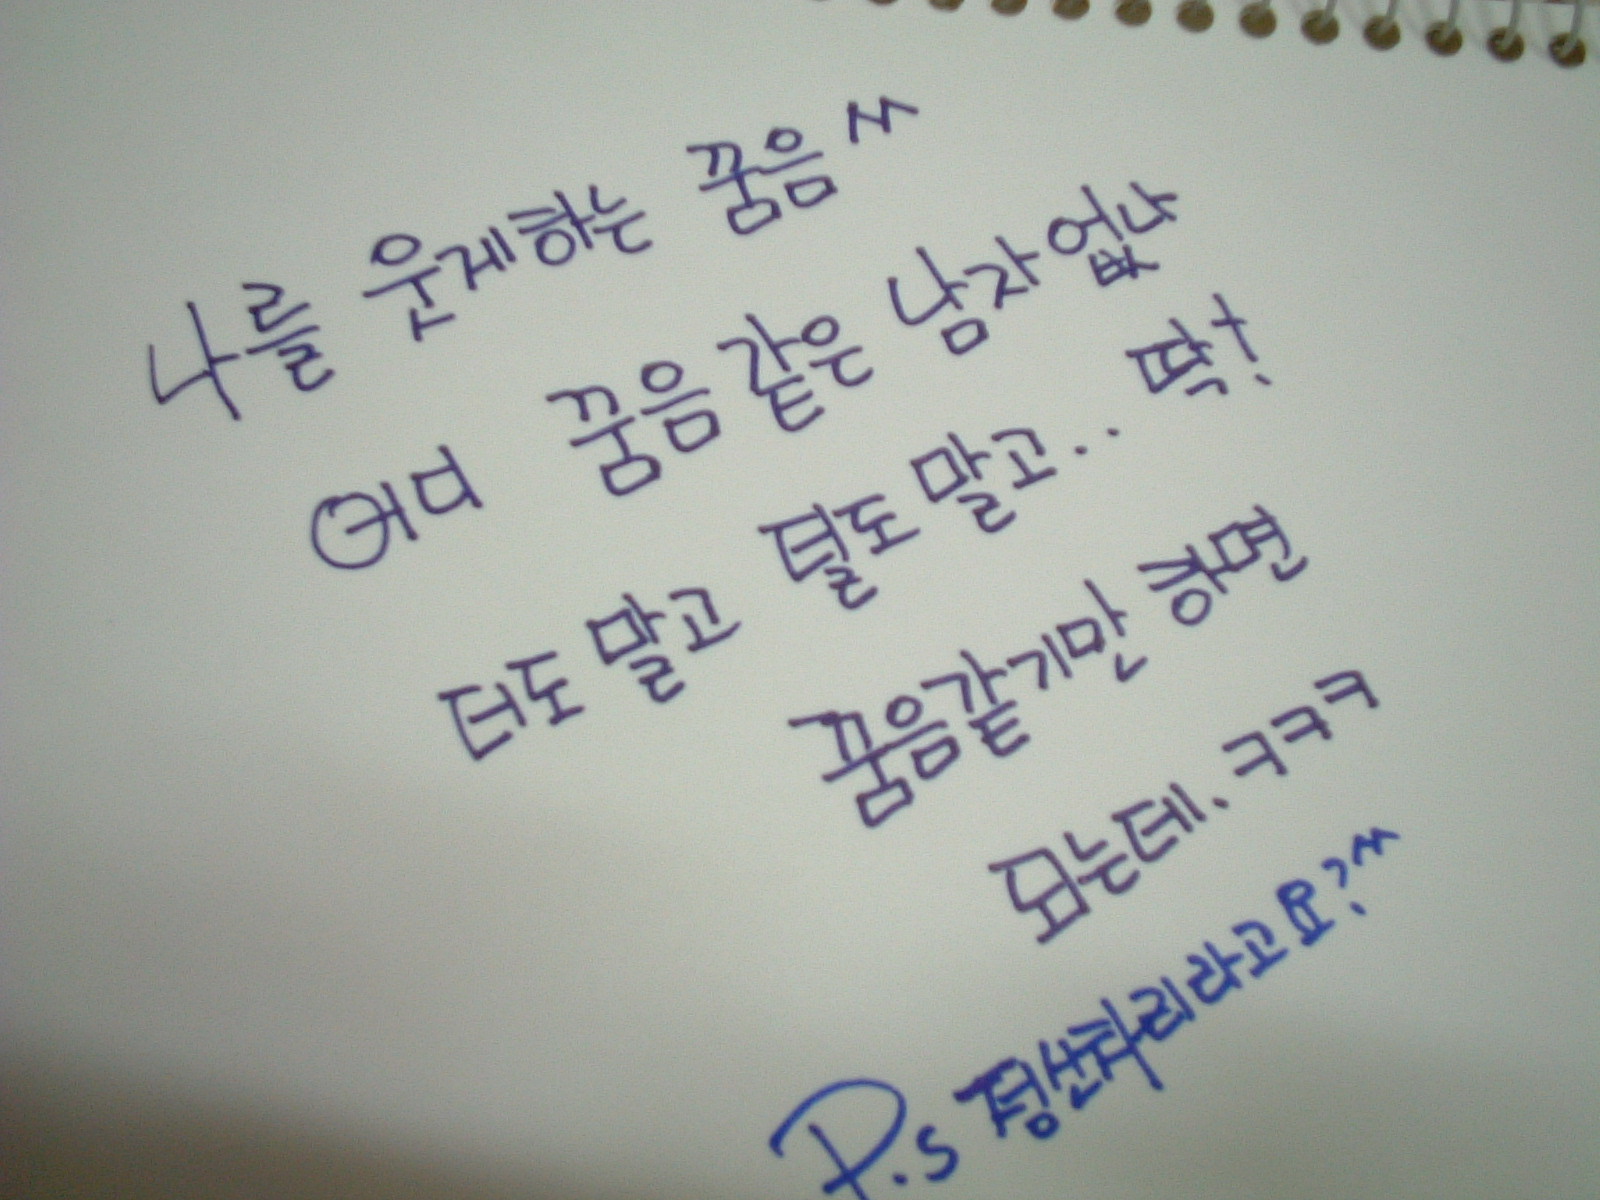 나를 웃게하는 꿈음^^
어디 꿈음같은 남자없나
더도말고 덜도말고.. 딱!
꿈음같기만 하면
되는데. ㅋㅋㅋ
P.s 정신차리라고요?^^